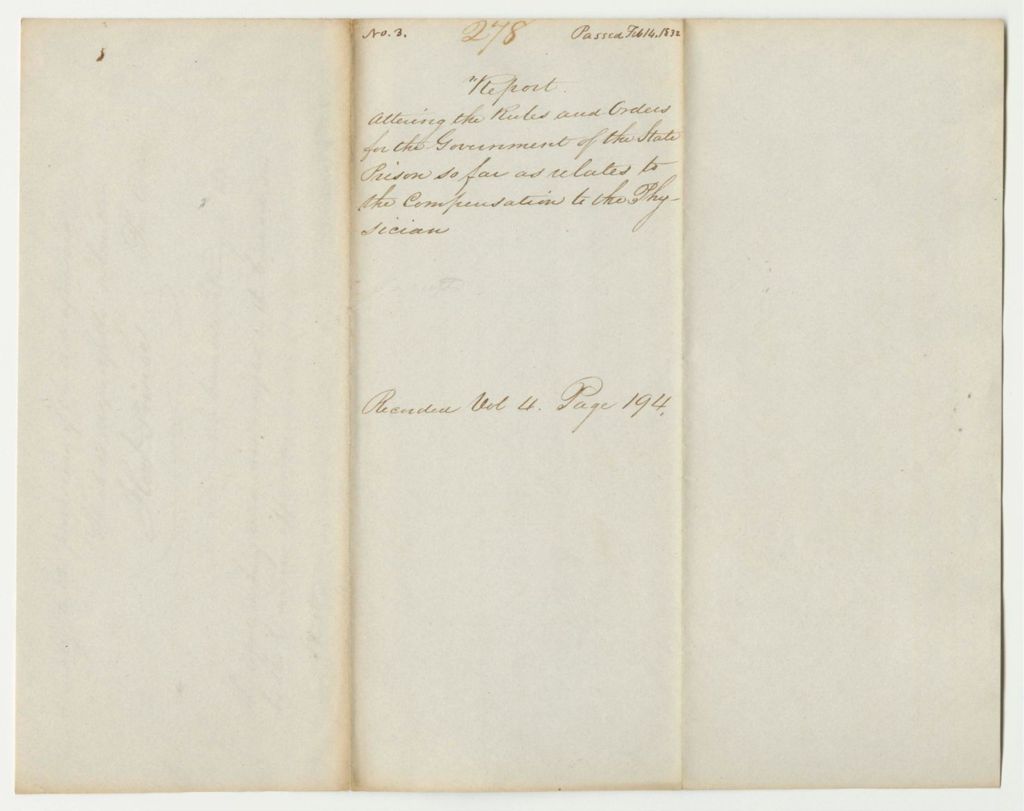 No. 3. 278 Passed Feb 14. 1832
Report.
Altering the Rules and Orders
for the Government of the State
Prison so far as relates to
the Compensation to the Phy-
sician
Recorded Vol 4. Page 194.